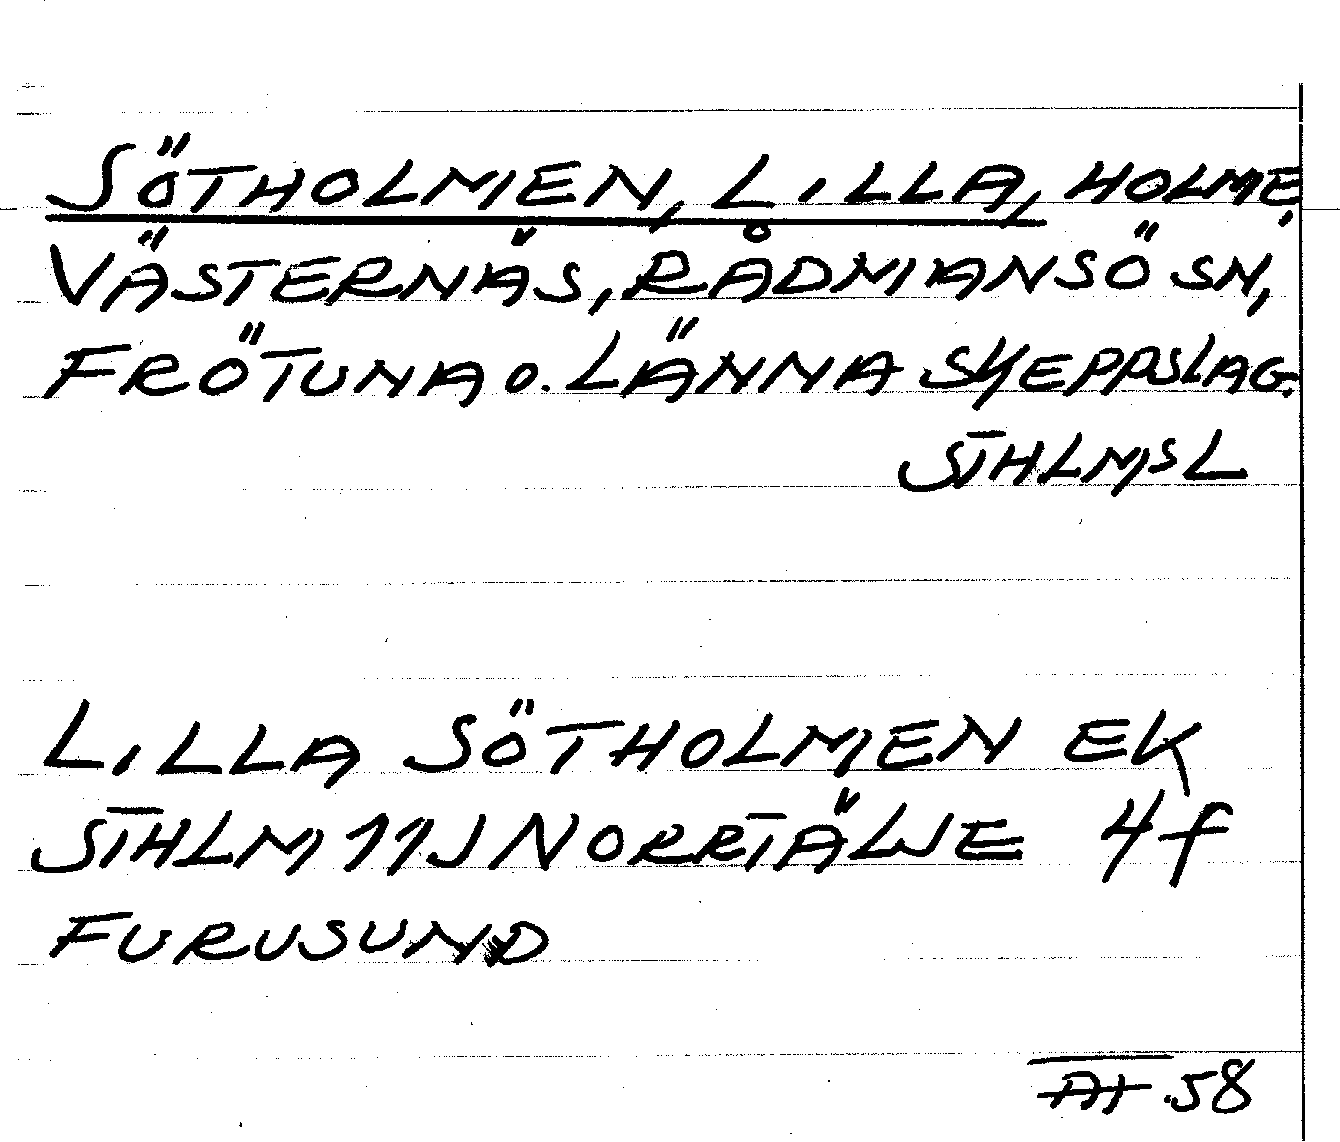 SÖTHOLMEN, LILLA, HOLME,
VÄSTERNÄS, RÅDMANSÖ SN,
FRÖTUNA O. LÄNNA SKEPPSLAG.
STHLMS L
LILLA SÖTHOLMEN EK
STHLM 11J NORRTÄLJE 4f
FURUSUND
.58